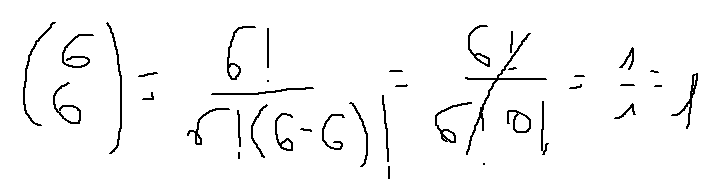 (6 6) = 6!/6!(6-6)! = 6!/6!0! = 1/1 = 1